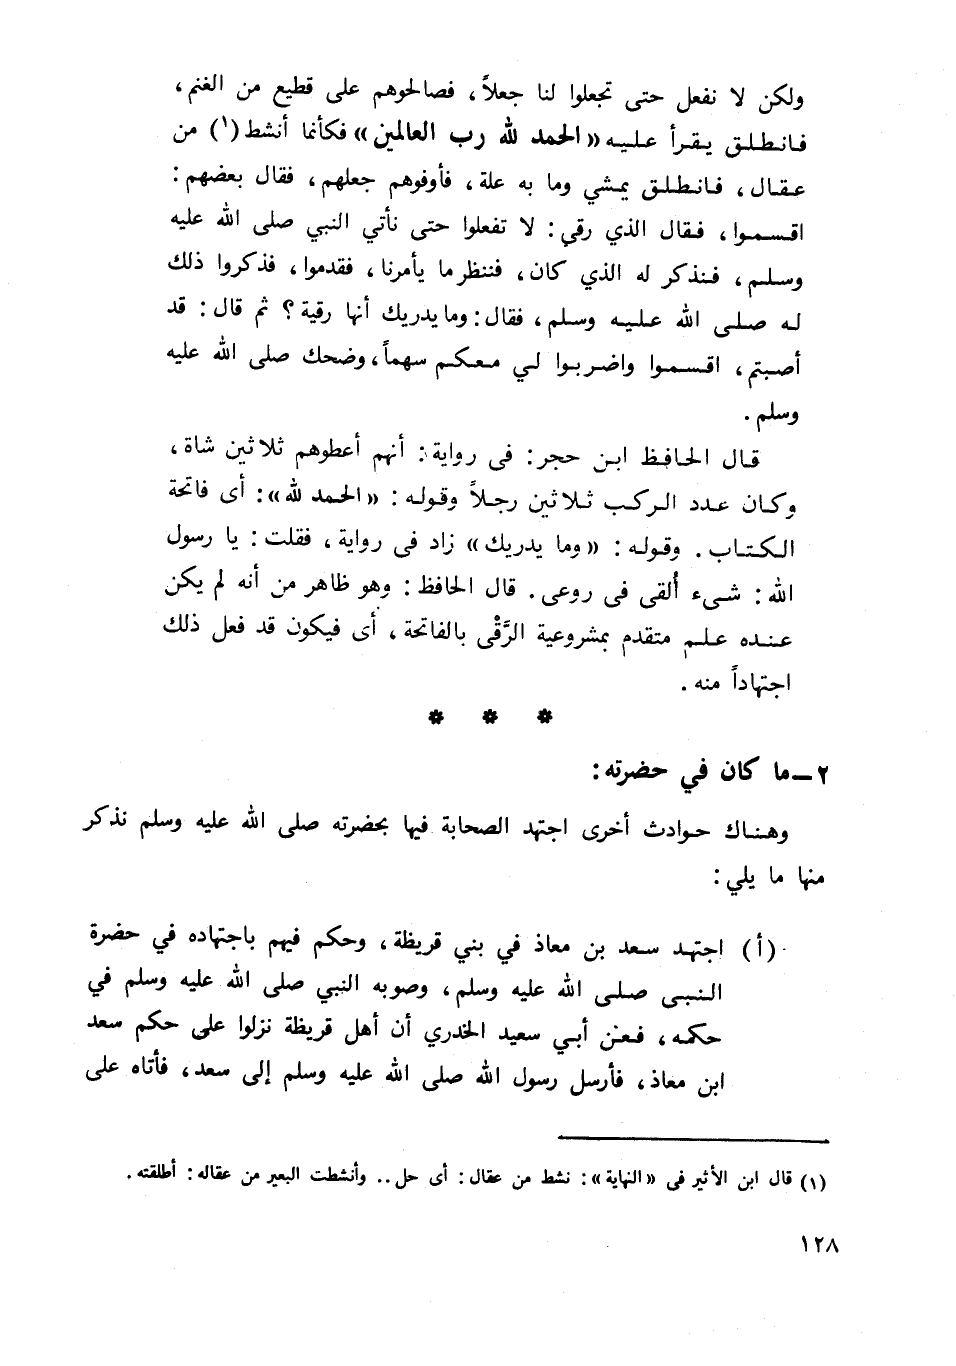 ولكن لا نفعل حتى تجعلوا لنا جعلاً، فصالحوهم على قطيع من الغنم،
فانطلق يقرأ عليه «الحمد لله رب العالمين» فكأنما أنشط(١) من
عقال، فانطلق يمشي وما به علة، فأوفوهم جعلهم، فقال بعضهم:
اقسموا، فقال الذي رقي: لا تفعلوا حتى نأتي النبي صلى الله عليه
وسلم، فنذكر له الذي كان، فننظر ما يأمرنا، فقدموا، فذكروا ذلك
له صلى الله عليه وسلم، فقال: وما يدريك أنها رقية؟ ثم قال: قد
أصبتم، اقسموا واضربوا لي معكم سهماً، وضحك صلى الله عليه
وسلم.
قال الحافظ ابن حجر: فى رواية: أنهم أعطوهم ثلاثين شاة،
وكان عدد الركب ثلاثين رجلاً وقوله: «الحمد لله»: أى فاتحة
الكتاب. وقوله: «وما يدريك» زاد فى رواية، فقلت: يا رسول
الله: شىء أُلقى فى روعى. قال الحافظ: وهو ظاهر من أنه لم يكن
عنده علم متقدم بمشروعية الرَّقْى بالفاتحة، أى فيكون قد فعل ذلك
اجتهاداً منه.
* * *
٢ــ ما كان في حضرته:
وهناك حوادث أخرى اجتهد الصحابة فيها بحضرته صلى الله عليه وسلم نذكر
منها ما يلي:
(أ) اجتهد سعد بن معاذ في بني قريظة، وحكم فيهم باجتهاده في حضرة
النبى صلى الله عليه وسلم، وصوبه النبي صلى الله عليه وسلم في
حكمه، فعن أبي سعيد الخدري أن أهل قريظة نزلوا على حكم سعد
ابن معاذ، فأرسل رسول الله صلى الله عليه وسلم إلى سعد، فأتاه على
(١) قال ابن الأثير فى «النهاية»: نشط من عقال: أى حل.. وأنشطت البعير من عقاله: أطلقته.
١٢٨